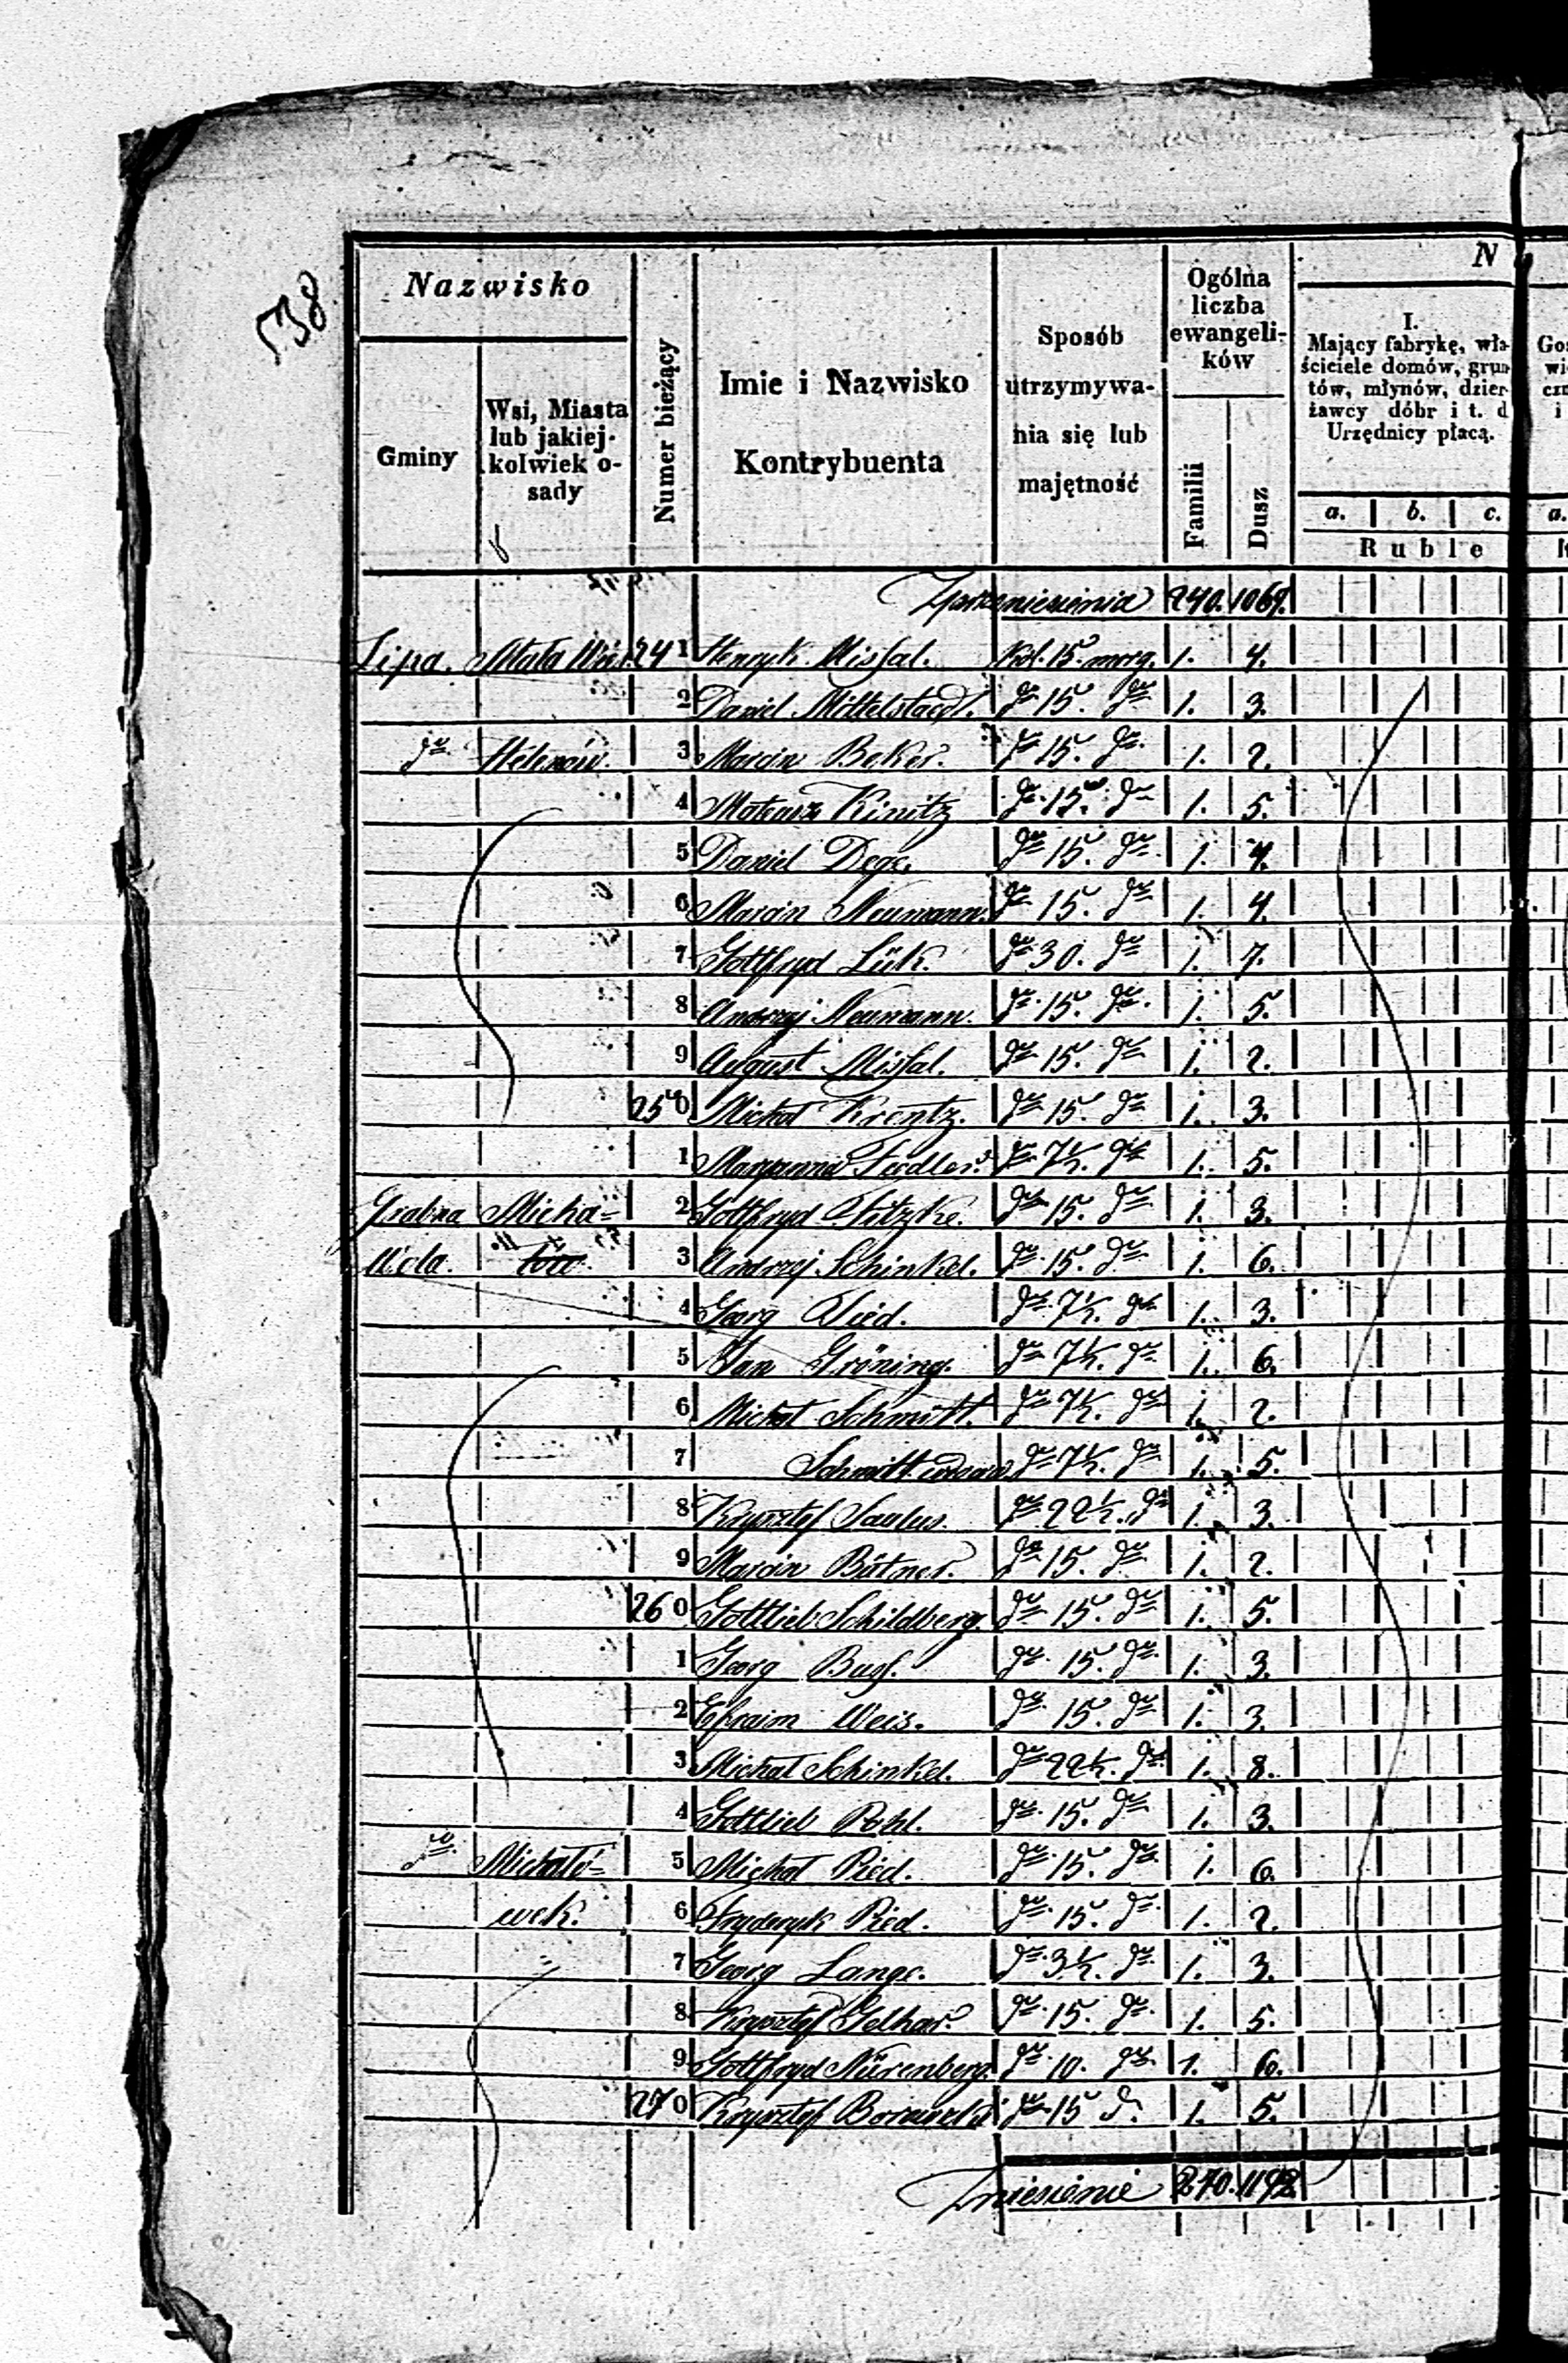 538
Nazwisko
Gminy
Wsi, Miasta lub jakiej-kolwiek o-sady
Numer bieżący
Imie i Nazwisko Kontrybuenta
Sposób utrzymywa-nia się lub majętność
Ogólna liczba ewangeli-ków
Familii
Dusz
N
I.
Mający fabrykę, wła-
ściciele domów, grun-
tów, młynów, dzier-
żawcy dóbr i t. d
Urzędnicy płacą.
a. b. c. a.
Ruble
Z przeniesienia 240. 1069.
Lipa. Mała Wieś 241 Henryk Missal. Kol. 15 morg. 1. 4.
2 Daniel Mittelstaedt. do 15. do 1. 3.
do Helenów. 3 Marcin Beker. do 15. do 1. 2.
4 Mateusz Kinitz do 15. do 1. 5.
5 Daniel Dege. do 15. do 1. 4.
6 Marcin Neumann. do 15. do 1. 4.
7 Gottfryd Lück. do 30. do 1. 7.
8 Andrzej Neumann. do 15. do 1. 5.
9 August Missal. do 15. do 1. 2.
250 Michał Krentz. do 15. do 1. 3.
1 Maryanna Fiedler. do 7½. do 1. 5.
Grabna Micha= 2 Gottfryd Fitzke. do 15. do 1. 3.
Wola. łów 3 Andrzej Schinkel. do 15. do 1. 6.
4 Georg do 7½. do 1. 3.
5 Jan Gröning. do 7½. do 1. 6.
6 Michał Schmitt. do 7½. do 1. 2.
7 Schmitt wdowa do 7½. do 1. 5.
8 Krysztof Saulus. do 22½. do 1. 3.
9 Marcin Bütner. do 15. do 1. 2.
260 Gottlieb Schildberg. do 15. do 1. 5.
1 Georg do 15. do 1. 3.
2 Efraim Weis. do 15. do 1. 3.
3 Michał Schinkel. do 22½. do 1. 8.
4 Gottlieb Pohl. do 15. do 1. 3.
do Michałó= 5 Michał Pied. do 15. do 1. 6.
wek. 6 Fryderyk Pied. do 15. do 1. 2.
7 Georg Lange. do 3½. do 1. 3.
8 Krysztof Gelhar. do 15. do 1. 5.
9 Gottfryd Nürenberg. do 10. do 1. 6.
270 Krysztof do 15 d. 1. 5.
Zniesienie 270. 1192